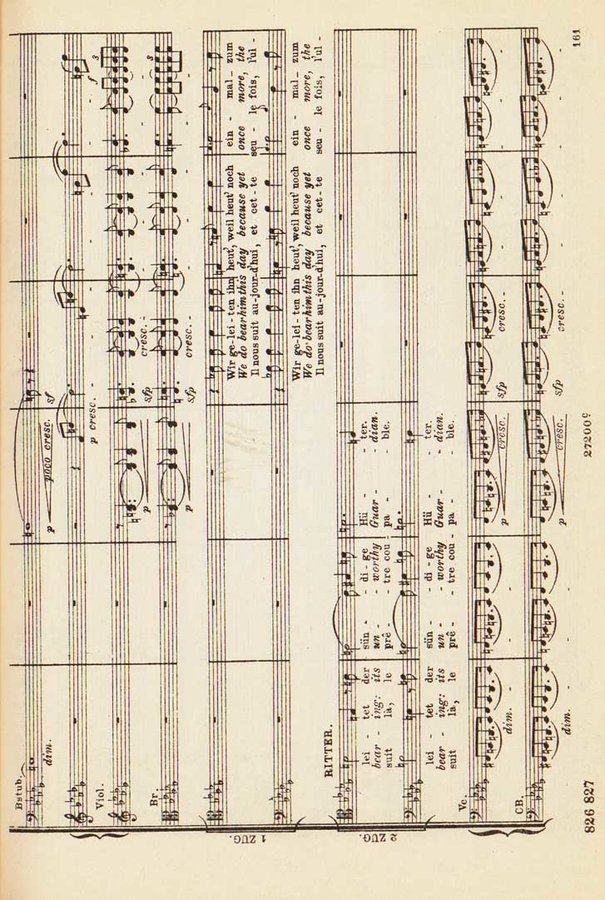 161
Bstub.
dim.
p poco cresc. sf
p cresc.
f
3
Viol.
p
cresc. -
sfp
3
Br.
p
cresc. -
sfp
1 ZUG.
Wir ge-lei-ten ihn heut', weil heut' noch ein - mal_ zum
We do bear him this day because yet once more, the
Il nous suit au-jour-d'hui, et cet-te seu - le fois, l'ul -
Wir ge-lei-ten ihn heut', weil heut' noch ein - mal_ zum
We do bear him this day because yet once more, the
Il nous suit au-jour-d'hui, et cet-te seu - le fois, l'ul -
RITTER.
2 ZUG.
lei - tet der sün - - di - ge Hü - - ter.
bear - ing: its un - - worthy Guar - - dian.
suit là, le prê - - tre cou - pa - - ble.
lei - tet der sün - - di - ge Hü - - ter.
bear - ing: its un - - worthy Guar - - dian.
suit là, le prê - - tre cou - pa - - ble.
Vc.
dim.
p cresc.
sfp
cresc. -
CB.
dim.
p cresc.
sfp
cresc. -
826 827
27200 c